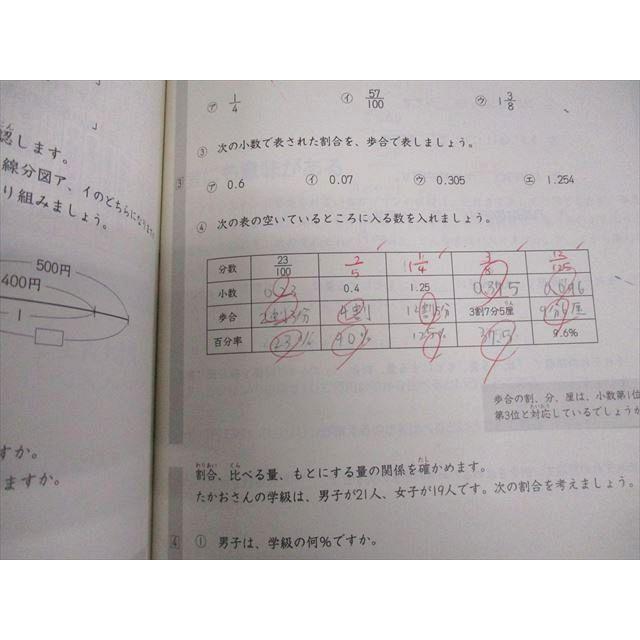 認します。
線分図ア、イのどちらになりますか
り組みましょう。
500円
400円
1
すか。
ますか。
㋐ 1/4 ㋑ 57/100 ㋒ 1 3/8
③ 次の小数で表された割合を、歩合で表しましょう。
3 ㋐ 0.6 ㋑ 0.07 ㋒ 0.305 ㋓ 1.254
④ 次の表の空いているところに入る数を入れましょう。
分数 23/100 2/5 1 1/4 3/8 12/125
小数 0.23 0.4 1.25 0.375 0.096
歩合 2割3分 4割 12割5分 3割7分5厘 9分6厘
百分率 23% 40% 125% 37.5 9.6%
歩合の割、分、厘は、小数第1位
第3位と対応しているでしょうか
割合、比べる量、もとにする量の関係を確かめます。
たかおさんの学級は、男子が21人、女子が19人です。次の割合を考えましょう。
4 ① 男子は、学級の何%ですか。